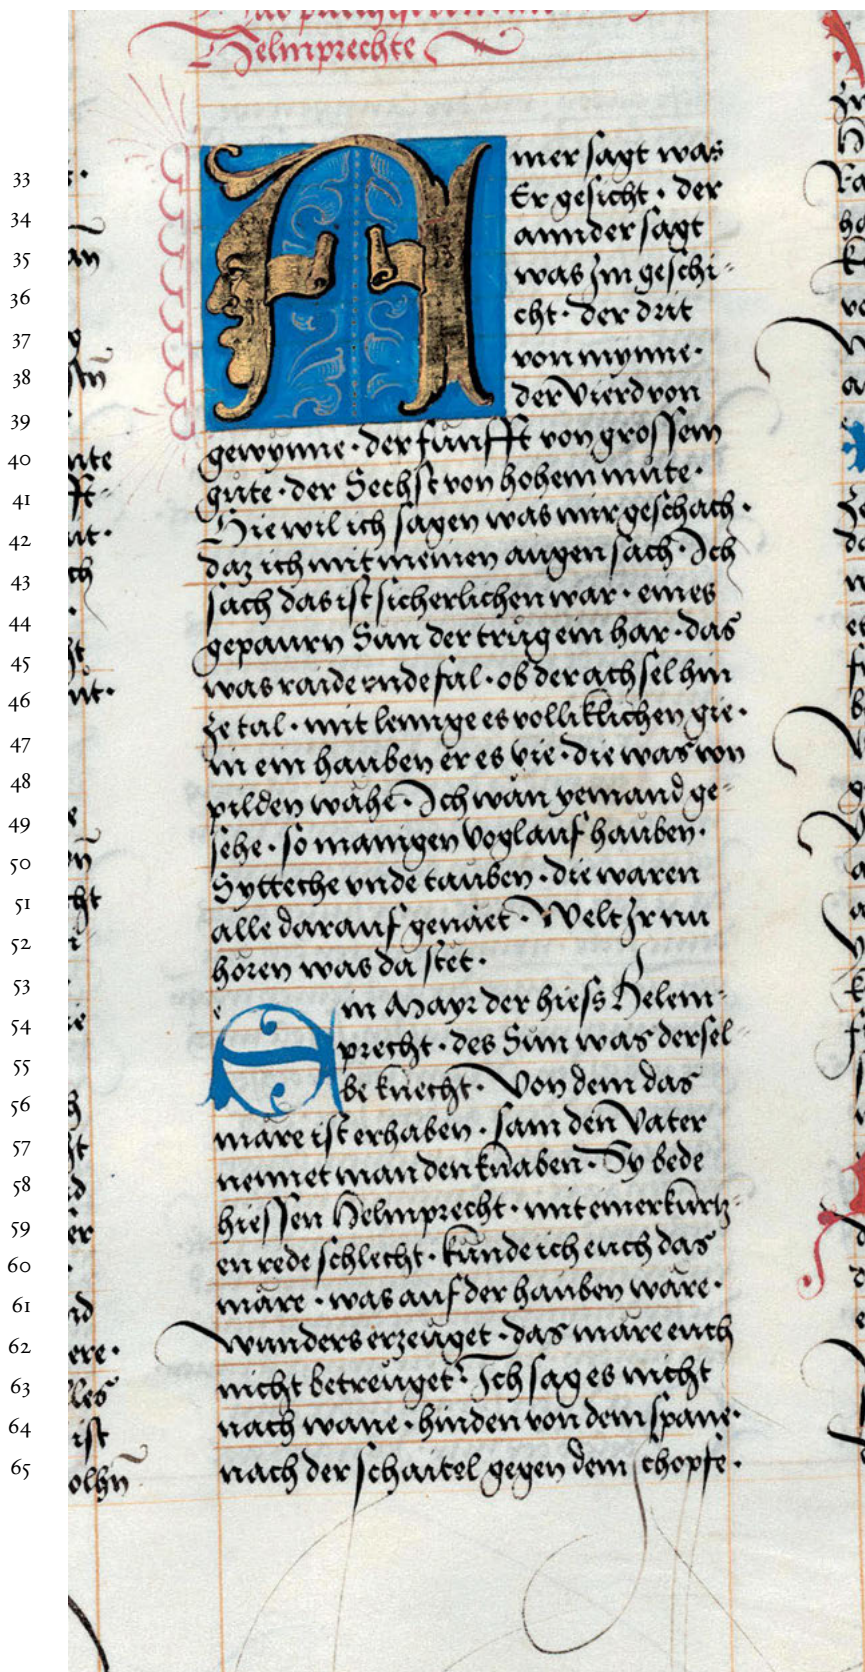 Helmprechte
33
34
35
36
37
38
39
40
41
42
43
44
45
46
47
48
49
50
51
52
53
54
55
56
57
58
59
60
61
62
63
64
65
Ainer sagt was
Er gesicht · der
annder sagt
was Im geschi-
cht · der drit
von mynne ·
der Vierd von
gewynne · der fünfft von grossem
gůte · der Sechst von hohem můte ·
Hie wil ich sagen was mir geschach ·
daz ich mit meinen augen sach · Ich
sach das ist sicherlichen war · eines
gepaurn Sun der trůg ein har · das
was raide vnde fal · ob der achsel hin
ze tal · mit lennge es volliklichen gie ·
in ein hauben er es vie · die was von
pilden wähe · Ich wän yemand ge-
sehe · so manigen Vogl auf hauben ·
Sytteche vnde tauben · die waren
alle darauf genäet · Welt Ir nu
hören was da stet ·
Ein Mayr der hiess Helem-
precht · des Sun was dersel-
be knecht · Von dem das
märe ist erhaben · sam den Vater
nennet man den knaben · Sy bede
hiessen Helmprecht · mit einer kurtz-
en rede schlecht · künde ich euch das
märe · was auf der hauben wäre ·
wunders erzeuget · das märe euch
nicht betreuget · Ich sag es nicht
nach wane · hinden von dem spane ·
nach der schaitel gegen dem schopfe ·